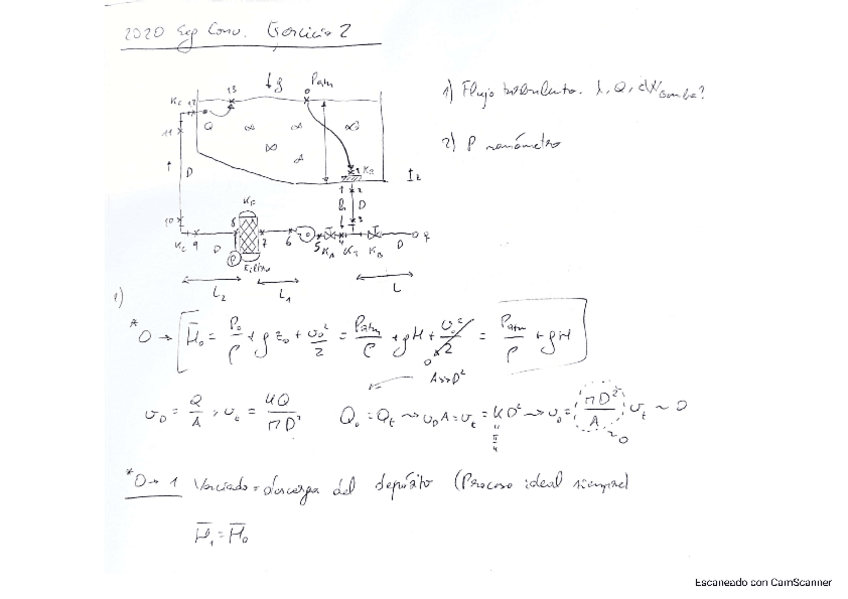 2020 Seg Conv. Ejercicio 2
↓g Patm
Kc 12 13
0
11
D
10
Kc 9 D 8 7 6 5 KA 4 KT KB D
KF
Filtro
1 2
D
3
L2 L1 L
1) Flujo turbulento. λ, Q, dWbomba?
2) P manómetro
1)
*0 → H̄0 = P0/ρ + g z0 + v0²/2 = Patm/ρ + gH + v0²/2 = Patm/ρ + gH
0
A>>D²
vD = Q/A, vc = 4Q/πD² Q0 = Qt ~> v0A = vt = KD² ~> v0 = (πD²/A) vt ~ 0
π/4 ~0
*0→1 Vaciado = descarga del depósito (Proceso ideal siempre)
H̄1 = H̄0
Escaneado con CamScanner